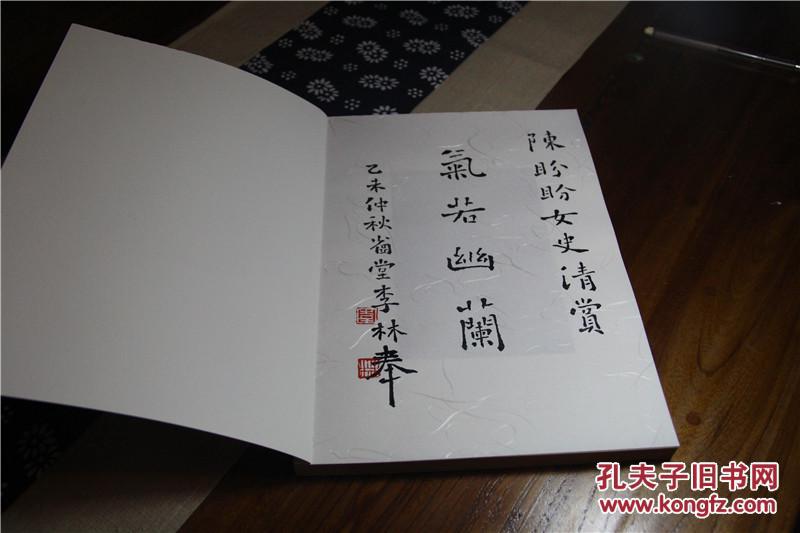 陳盼盼女史清賞
氣若幽蘭
乙未仲秋崙堂李林奉
孔夫子旧书网
www.kongfz.com